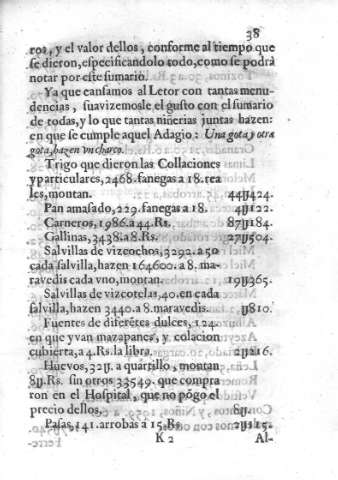 38
ros, y el valor dellos, conforme al tiempo que
se dieron, especificandolo todo, como se podrà
notar por este sumario.
Ya que cansamos al Letor con tantas menu-
dencias, suavizemosle el gusto con el sumario
de todas, y lo que tantas niñerias juntas hazen:
en que se cumple aquel Adagio: Una gota y otra
gota, hazen vn charco.
Trigo que dieron las Collaciones
y particulares, 2468. fanegas a 18. rea
les, montan. 44ɥ424.
Pan amasado, 229. fanegas a 18. 4ɥ122.
Carneros, 1986. a 44. Rs. 87ɥ184.
Gallinas, 3438. a 8. Rs. 27ɥ504.
Salvillas de vizcochos, 3292. a 50
cada salvilla, hazen 164600. a 8. ma-
ravedis cada vno, montan. 19ɥ365.
Salvillas de vizcotelas, 40. en cada
salvilla, hazen 3440. a 8. maravedis. ɥ810.
Fuentes de diferẽtes dulces, 124.
en que yvan mazapanes, y colacion
cubierta, a 4. Rs. la libra. 2ɥ216.
Huevos, 32ɥ. a quartillo, montan
8ɥ. Rs. sin otros 33549. que compra
ron en el Hospital, que no põgo el
precio dellos, 8ɥ.
Pasas, 141. arrobas a 15. Rs. 2ɥ115.
K 2 Al-